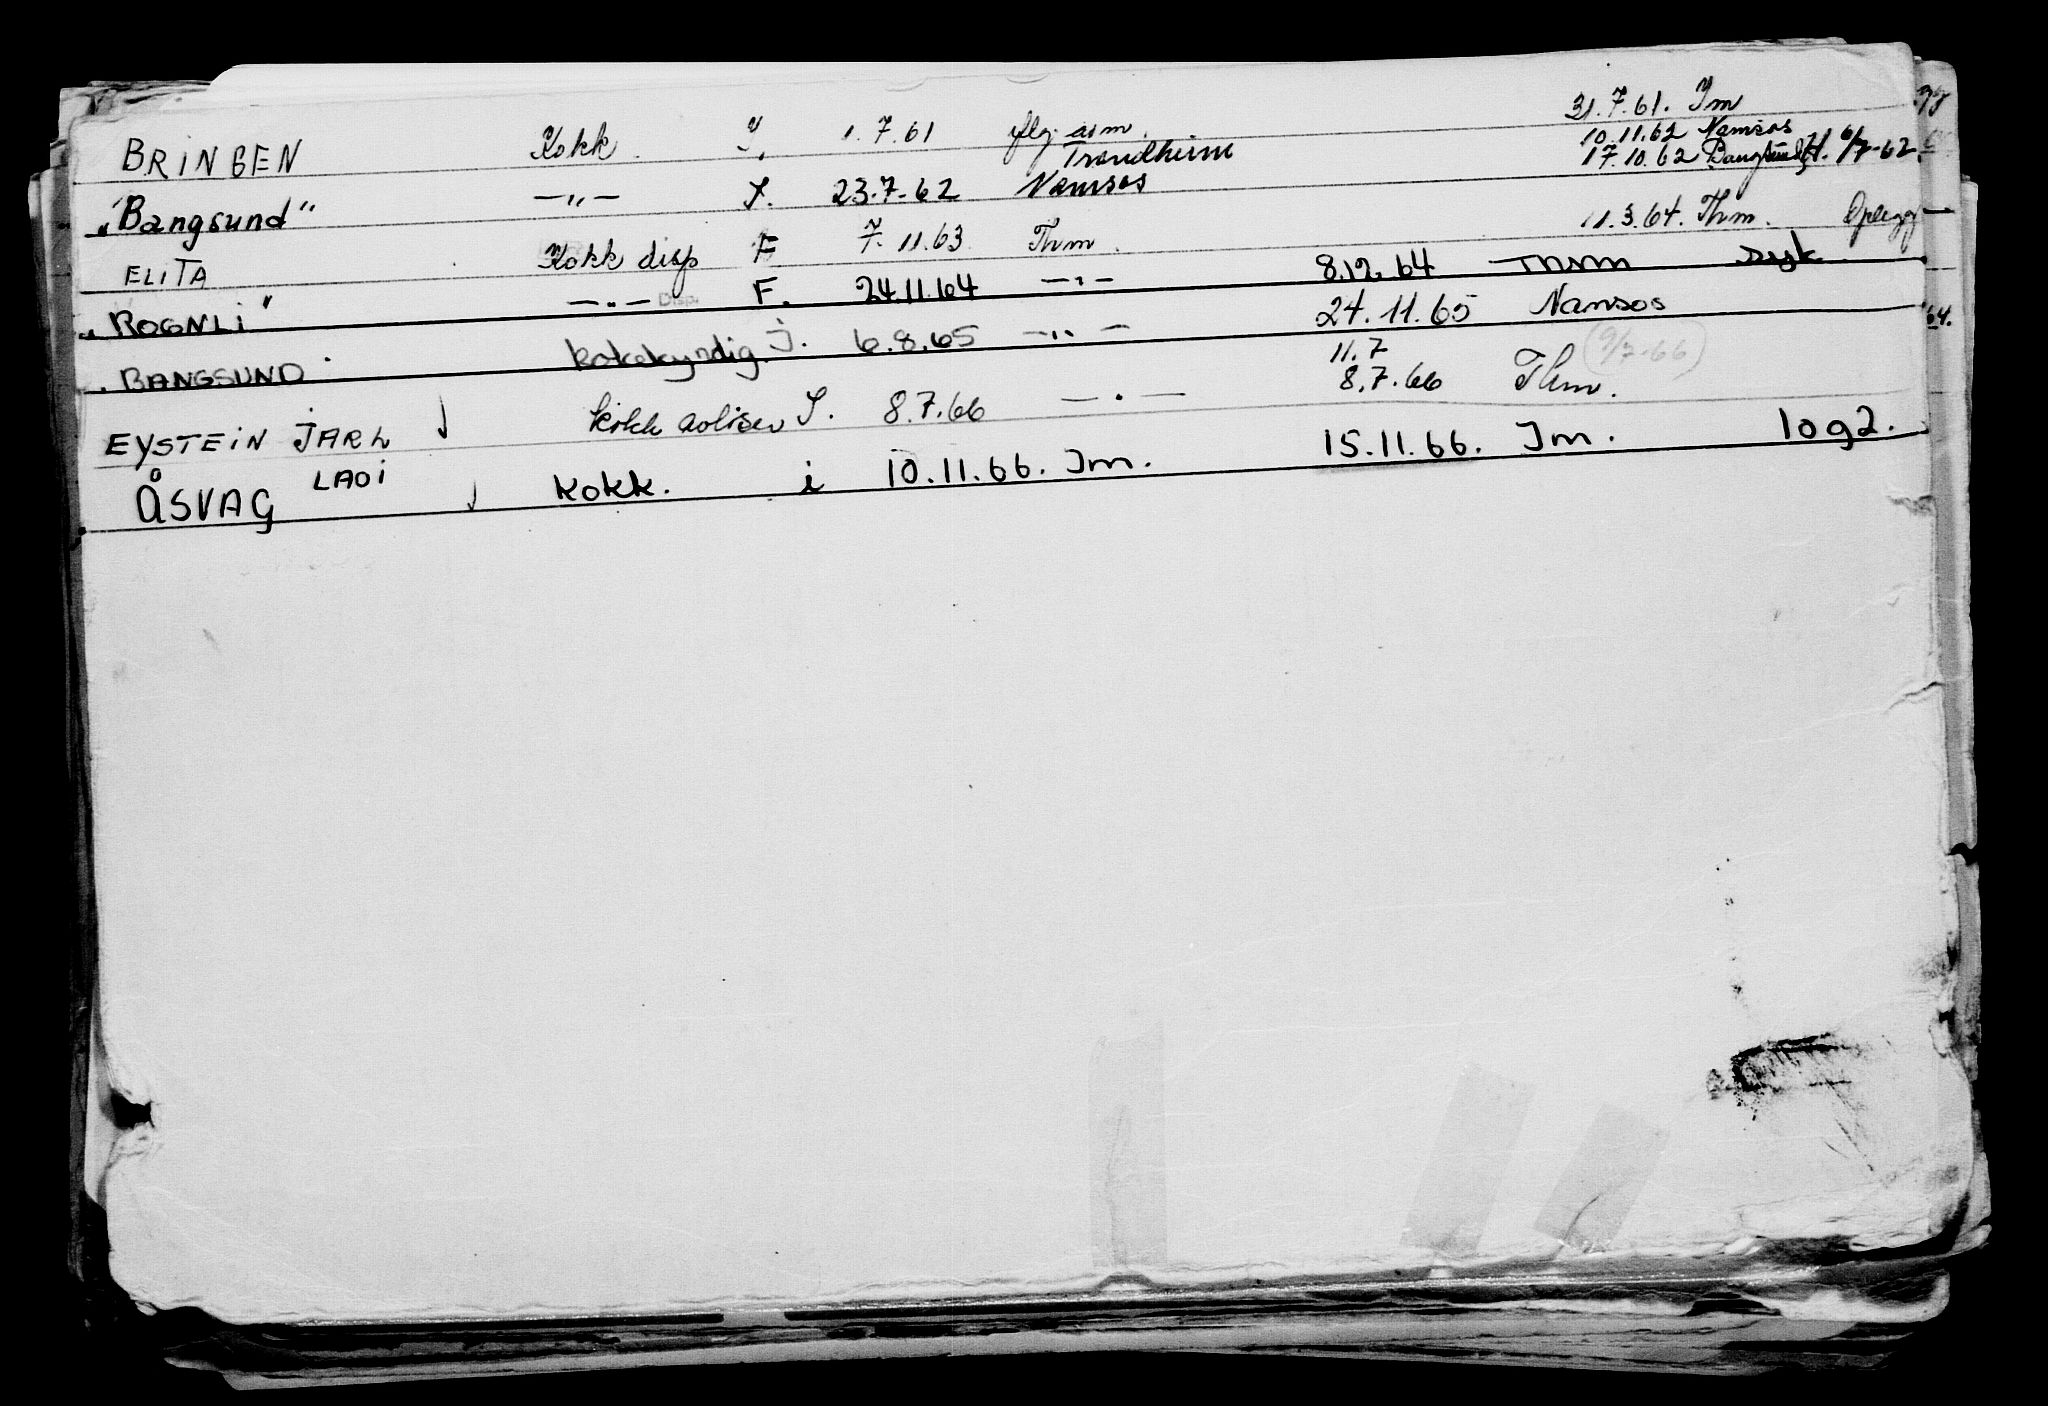 BRINGEN Kokk. I. 1.7.61 flg. avm. 31.7.61. Im
Trondheim 10.11.62 Namsos
"Bangsund" —„— I. 23.7-62 Namsos 17.10.62 Bangsund 6/7-62.
ELITA Kokk disp F 7.11.63 Thm. 11.3.64. Thm. Oplegg
"ROGNLI" —„— Disp. F. 24.11.64 —„— 8.12.64 Thm syk
"BANGSUND" kokekyndig I. 6.8.65 —„— 24.11.65 Namsos
11.7 (9/7-66)
EYSTEIN JARL kokk I. 8.7.66 —„— 8.7.66 Thm.
LADI
ÅSVAG kokk. i 10.11.66. Im. 15.11.66. Im. 1og2.
64.